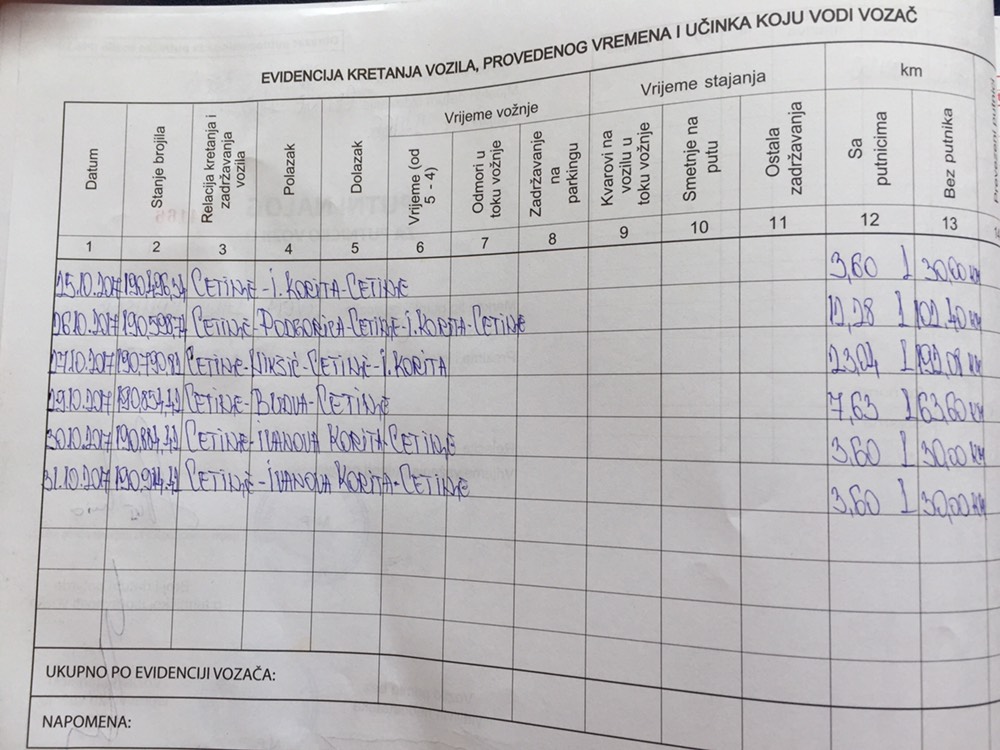 EVIDENCIJA KRETANJA VOZILA, PROVEDENOG VREMENA I UČINKA KOJU VODI VOZAČ
Datum
Stanje brojila
Relacija kretanja i zadržavanja vozila
Polazak
Dolazak
Vrijeme vožnje
Vrijeme (od 5 - 4)
Odmori u toku vožnje
Zadržavanje na parkingu
Vrijeme stajanja
Kvarovi na vozilu u toku vožnje
Smetnje na putu
Ostala zadržavanja
km
Sa putnicima
Bez putnika
1 2 3 4 5 6 7 8 9 10 11 12 13
25.10.2017 190.496,34 CETINJE - I. KORITA - CETINJE 3,60 l 30,00 km
26.10.2017 190.598,74 CETINJE - PODGORICA - CETINJE - I. KORITA - CETINJE 12,28 l 102,40 km
27.10.2017 190.790,82 CETINJE - NIKŠIĆ - CETINJE - I. KORITA 23,04 l 192,08 km
29.10.2017 190.854,42 CETINJE - BUDVA - CETINJE 7,63 l 63,60 km
30.10.2017 190.884,42 CETINJE - IVANOVA KORITA - CETINJE 3,60 l 30,00 km
31.10.2017 190.914,42 CETINJE - IVANOVA KORITA - CETINJE 3,60 l 30,00 km
UKUPNO PO EVIDENCIJI VOZAČA:
NAPOMENA: